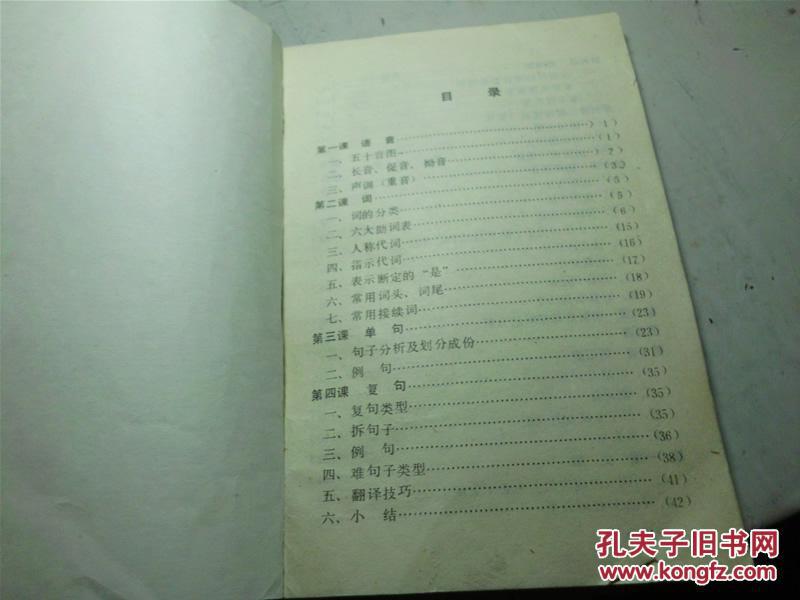 目 录
第一课 语 音……………………( 1 )
一、五十音图……………………( 1 )
二、长音、促音、拗音……………………( 2 )
三、声调(重音)……………………( 3 )
第二课 词……………………( 5 )
一、词的分类……………………( 5 )
二、六大助词表……………………( 6 )
三、人称代词……………………(15)
四、指示代词……………………(16)
五、表示断定的“是”……………………(17)
六、常用词头、词尾……………………(18)
七、常用接续词……………………(19)
第三课 单 句……………………(23)
一、句子分析及划分成份……………………(23)
二、例 句……………………(31)
第四课 复 句……………………(35)
一、复句类型……………………(35)
二、拆句子……………………(35)
三、例 句……………………(36)
四、难句子类型……………………(38)
五、翻译技巧……………………(41)
六、小 结……………………(42)
孔夫子旧书网
www.kongfz.com